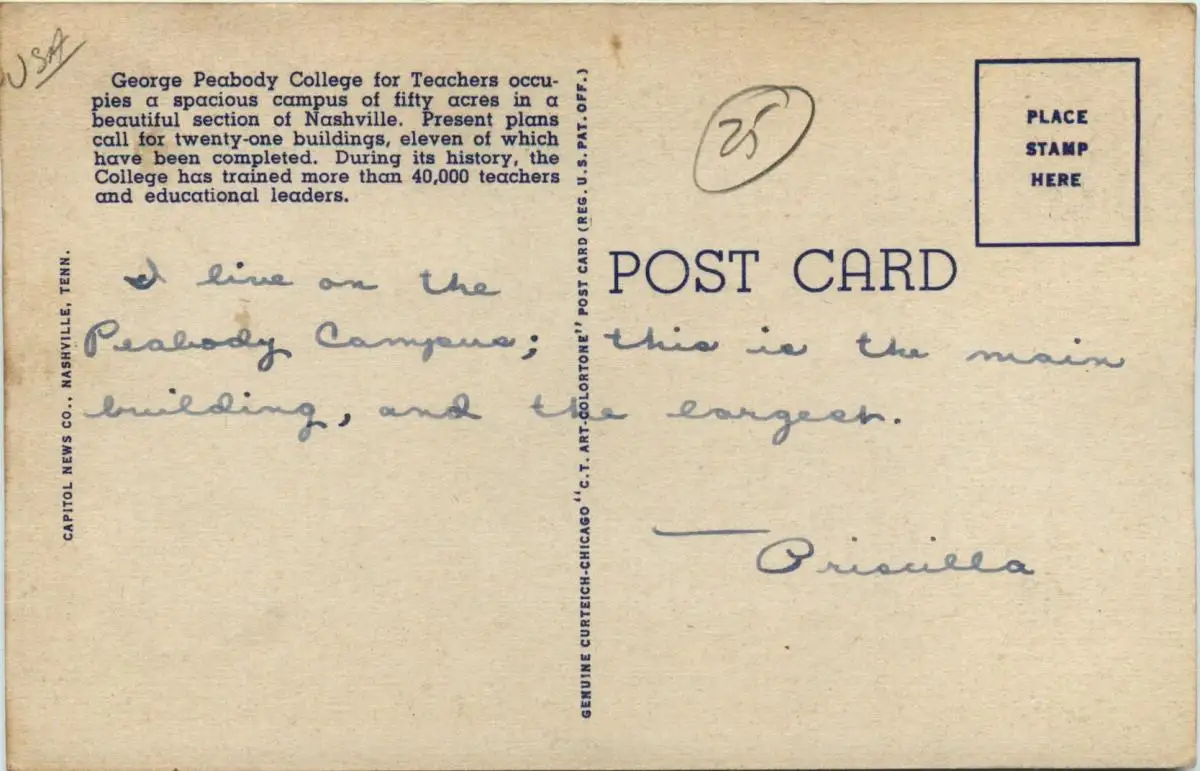 USA
George Peabody College for Teachers occu-
pies a spacious campus of fifty acres in a
beautiful section of Nashville. Present plans
call for twenty-one buildings, eleven of which
have been completed. During its history, the
College has trained more than 40,000 teachers
and educational leaders.
CAPITOL NEWS CO., NASHVILLE, TENN.
GENUINE CURTEICH-CHICAGO "C.T. ART-COLORTONE" POST CARD (REG. U.S. PAT. OFF.)
25
PLACE
STAMP
HERE
POST CARD
I live on the
Peabody Campus; this is the main
building, and the largest.
— Priscilla